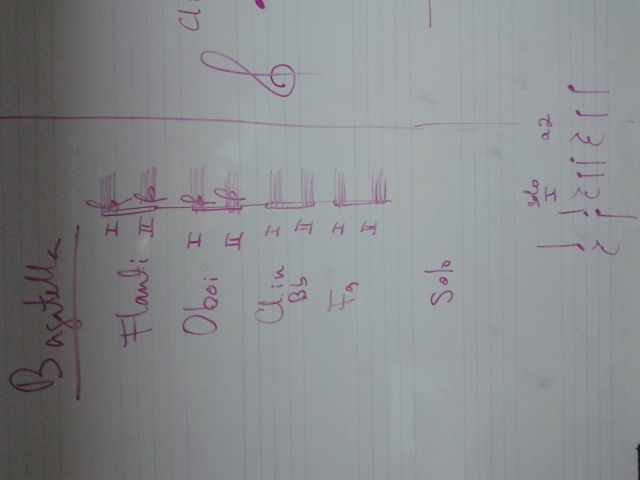 Bagatella
Flauti I
II
Oboi I
II
Cl. in I
Bb II
Fg I
II
Solo
solo
I
a2